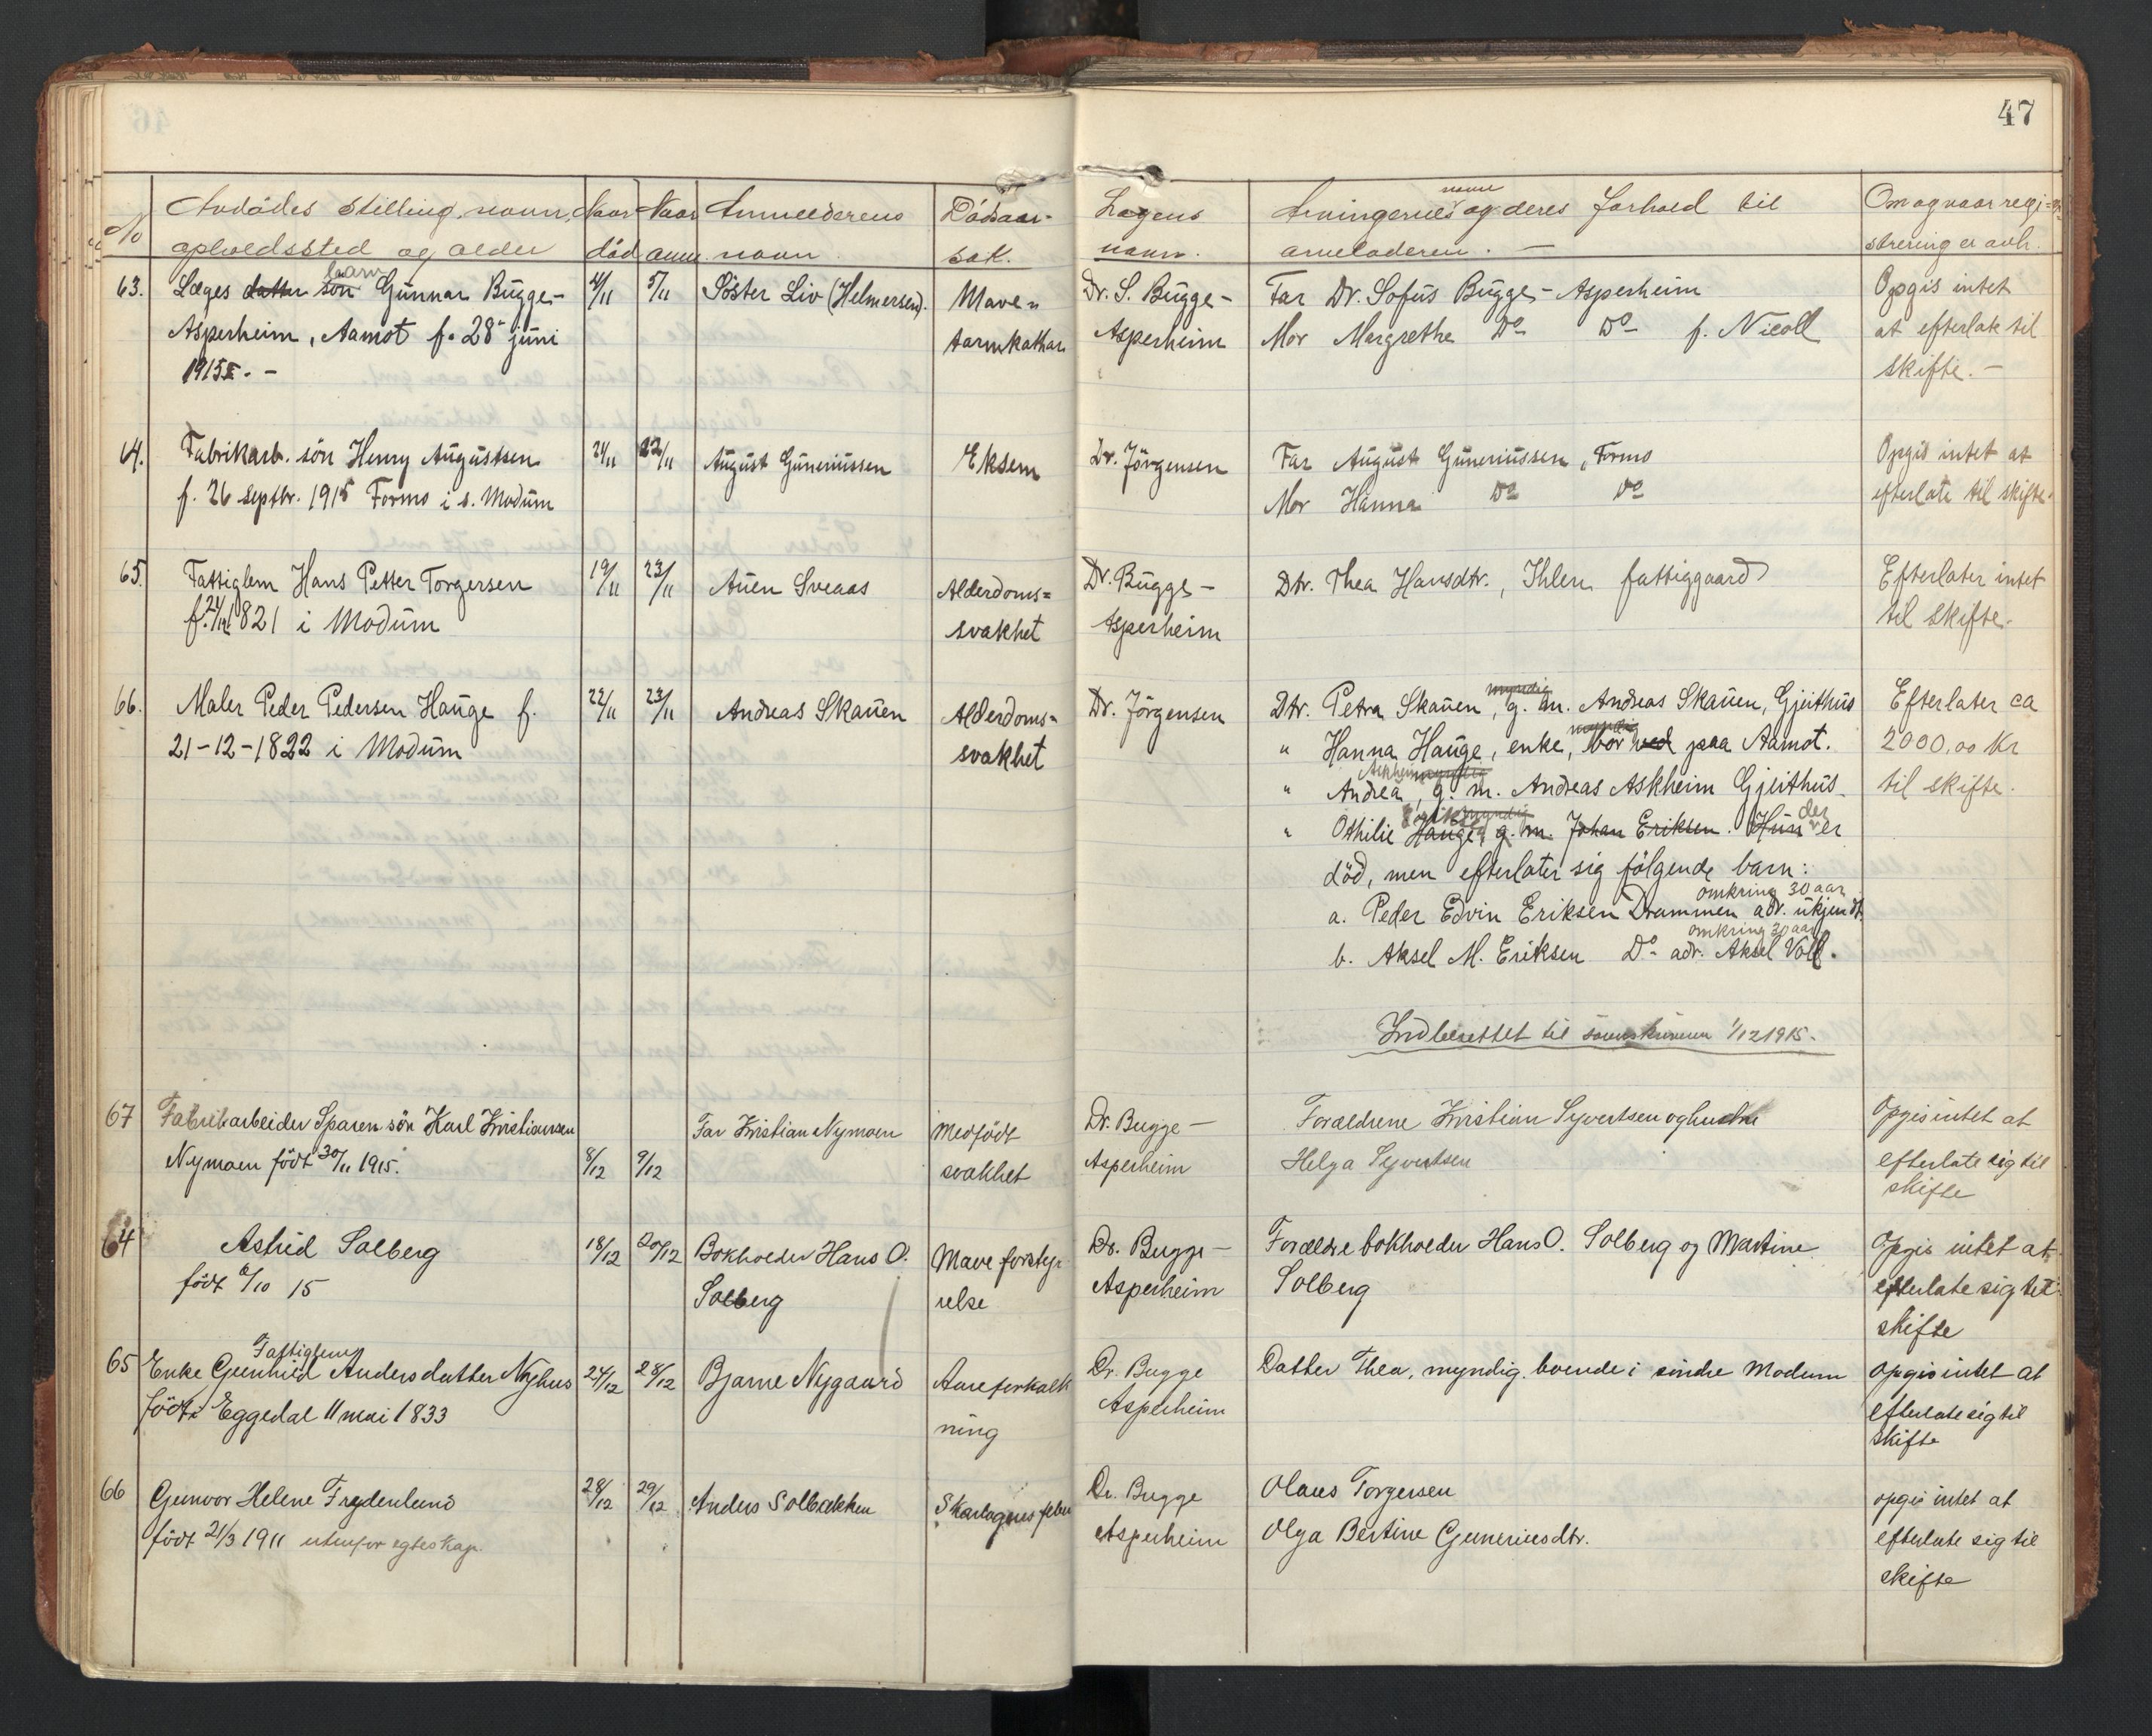 47
No
Avdödes stilling, navn,
opholdssted og alder
Naar
död
Naar
anm.
Anmelderens
navn
Dödsaar-
sak.
Lægens
navn.
Arvingernes navn og deres forhold til
arveladeren. —
Om og naar regi-
strering er avh.
63.
Læges datter sön barn Gunnar Bugge-
Asperheim, Aamot f. 28 juni
1915. -
4/11
5/11
Söster Liv (Helmersen).
Mave =
tarmkathar
Dr. S. Bugge -
Asperheim
Far Dr. Sofus Bugge - Asperheim
Mor Margrethe Do Do f. Nicoll
Opgis intet
at efterlate til
skifte. -
64.
Fabrikarb. sön Henry Augustsen
f. 26 septbr. 1915 Formo i s. Modum
21/11
22/11
August Guneriussen
Eksem
Dr. Jörgensen
Far August Guneriussen, Formo
Mor Hanna Do Do
Opgis intet at
efterlate til skifte.
65.
Fattiglem Hans Petter Torgersen
f. 24/12 1821 i Modum
19/11
23/11
Auen Sveaas
Alderdoms=
svakhet
Dr. Bugge -
Asperheim
Dtr. Thea Hansdtr., Ihlen fattiggaard
Efterlater intet
til skifte.
66.
Maler Peder Pedersen Hauge f.
21-12-1822 i Modum
22/11
23/11
Andreas Skauen
Alderdoms=
svakhet
Dr. Jörgensen
Dtr. Petra Skauen, myndig g. m. Andreas Skauen, Gjeithus
" Hanna Hauge, enke, myndig bor ved paa Aamot.
" Andrea Askheim myndig, g. m. Andreas Askheim Gjeithus.
" Othilie Hauge, Eriksen myndig g. m. Johan Eriksen. Hun der er
död, men efterlater sig fölgende barn:
a. Peder Edvin Eriksen Drammen omkring 30 aar adr. ukjendt.
b. Aksel M. Eriksen Do - omkring 30 aar adr. Aksel Voll.
Efterlater ca
2000,00 Kr
til skifte.
Indberettet til sorenskriveren 1/12 1915.
67
Fabrikarbeider Sparen sön Karl Kristiansen
Nymoen födt 30/11 1915.
8/12
9/12
Far Kristian Nymoen
Medfödt
svakhet
Dr. Bugge -
Asperheim
Forældrene Kristian Syvertsen og hustru
Helga Syvertsen
Opgis intet at
efterlate sig til
skifte
64
Astrid Solberg
födt 6/10 15
18/12
20/12
Bokholder Hans O.
Solberg
Mave forstyr
relse
Dr. Bugge -
Asperheim
Forældre bokholder Hans O. Solberg og Martine
Solberg
Opgis intet at
efterlate sig til
skifte
65
Fattiglem
Enke Gunhild Andersdatter Nyhus
födt i Eggedal 11 mai 1833
27/12
28/12
Bjarne Nygaard
Aareforkalk
ning
Dr. Bugge
Asperheim
Datter Thea, myndig. boende i söndre Modum
opgis intet at
efterlate sig til
skifte
66
Gunvor Helene Frydenlund
födt 21/3 1911 utenfor egteskap.
28/12
29/12
Anders Solbakken
Skarlagensfeber
Dr. Bugge
Asperheim
Olaus Torgersen
Olga Bertine Guneriusdtr.
opgis intet at
efterlate sig til
skifte